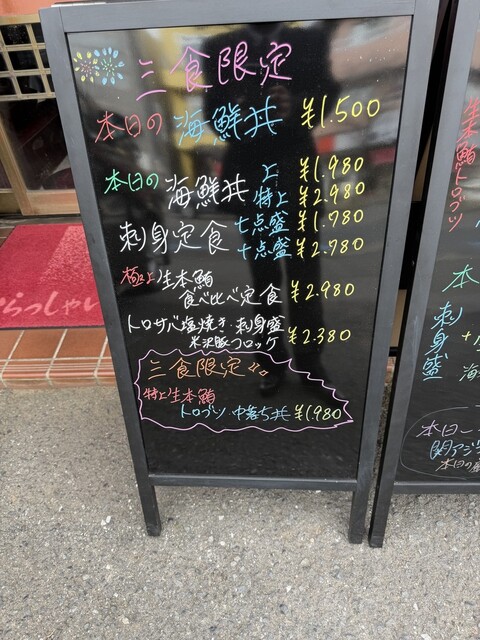 三食限定
本日の 海鮮丼 ¥1.500
本日の 海鮮丼 上 ¥1.980
特上 ¥2.980
刺身定食 七点盛 ¥1.780
十点盛 ¥2.780
極上生本鮪
食べ比べ定食 ¥2.980
トロサバ塩焼き・刺身盛
米沢豚コロッケ ¥2.380
三食限定
特上生本鮪
トロブツ 中落ち丼 ¥1.980
らっしゃい
生本鮪トロブツ
本
刺身盛
本日一
関アジ
本日の